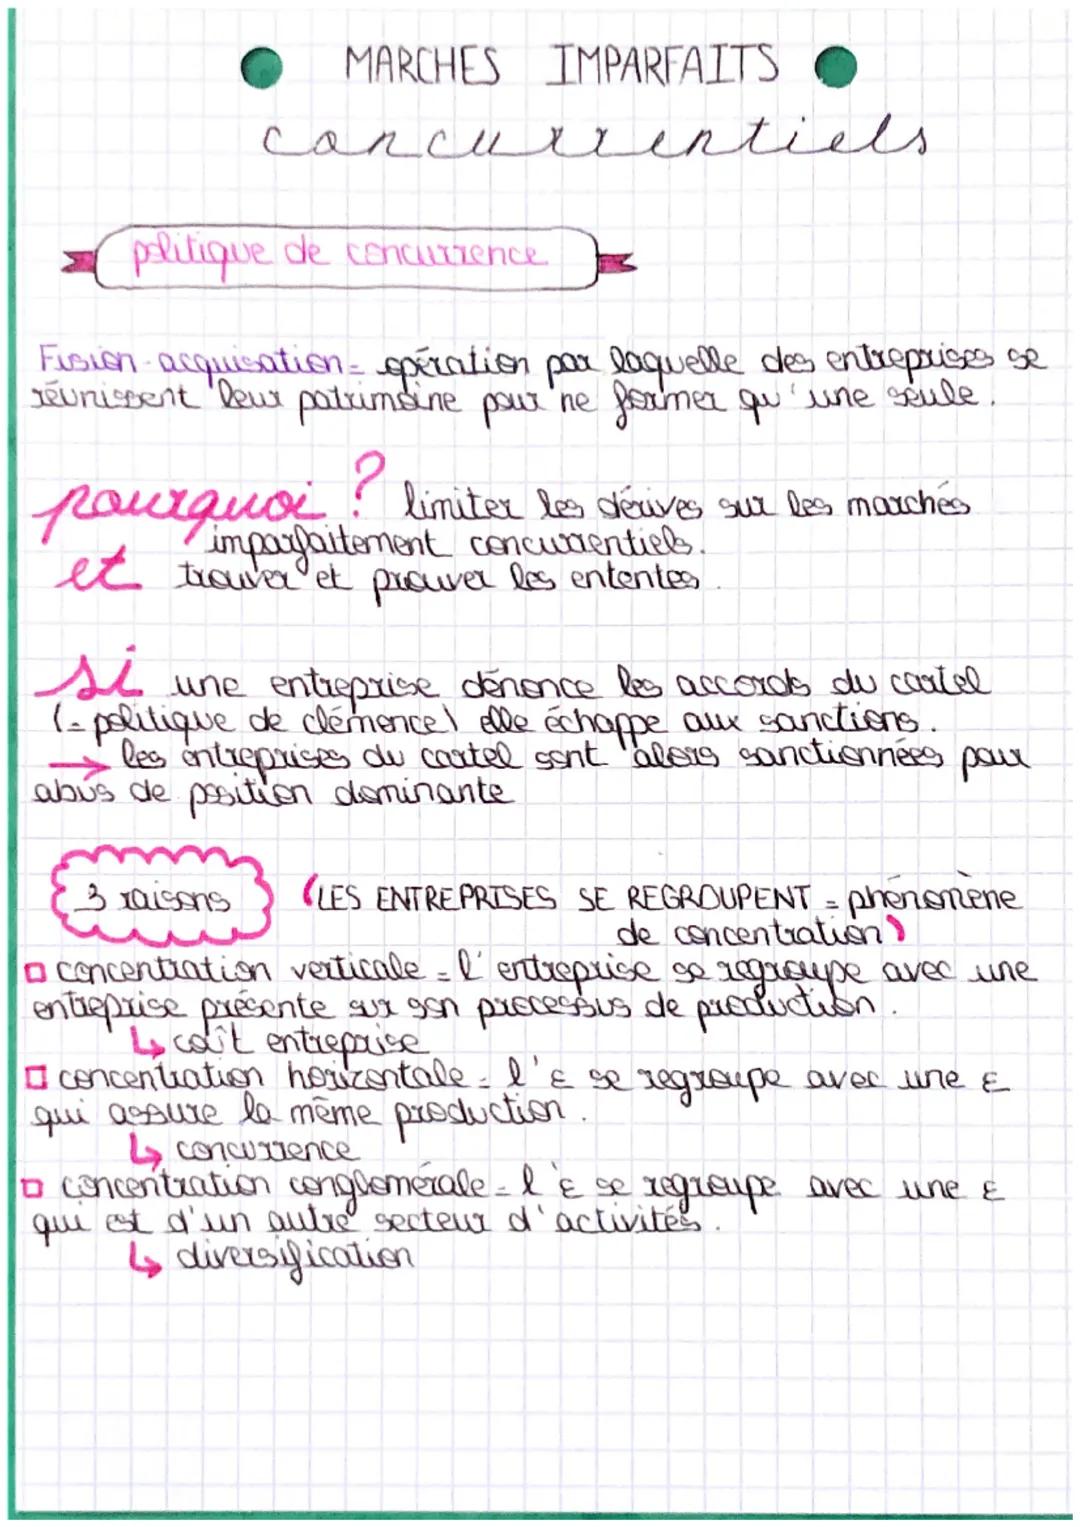 MARCHES IMPARFAITS
concurrentiels
politique de concurrence
Fusion-acquisation = opération par laquelle des entreprises se
réunissent leur patrimoine pour ne former qu'une seule.
pourquoi ? limiter les dérives sur les marchés
imparfaitement concurrentiels.
et trouver et prouver les ententes.
si une entreprise dénonce les accords du cartel
(= politique de clémence) elle échappe aux sanctions.
→ les entreprises du cartel sont alors sanctionnées pour
abus de position dominante
3 raisons (LES ENTREPRISES SE REGROUPENT = phénomène
de concentration)
□ concentration verticale = l'entreprise se regroupe avec une
entreprise présente sur son processus de production.
↳ coût entreprise
□ concentration horizontale = l'ε se regroupe avec une ε
qui assure la même production.
↳ concurrence
□ concentration conglomérale = l'ε se regroupe avec une ε
qui est d'un autre secteur d'activités.
↳ diversification